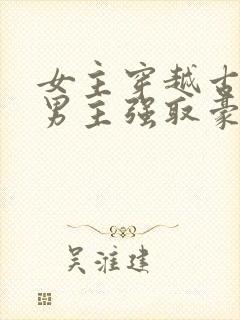 女主穿越古
男主强取豪
吴淮建